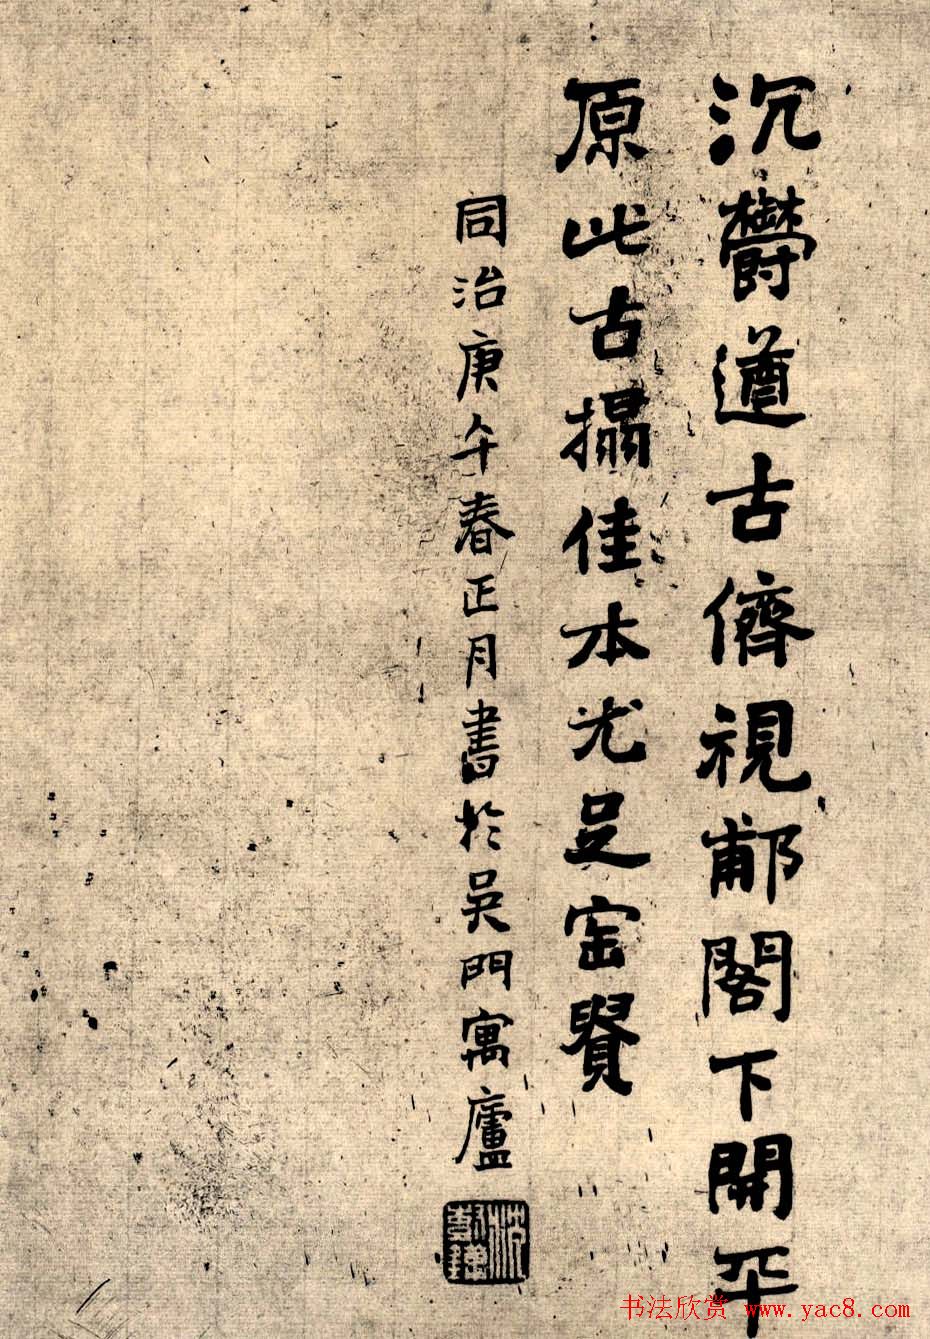 沉鬱遒古儕視郙閣下開平
原此古搨佳本尤足寶貴
同治庚午春正月書於吳門寓廬
书法欣赏 www.yac8.com